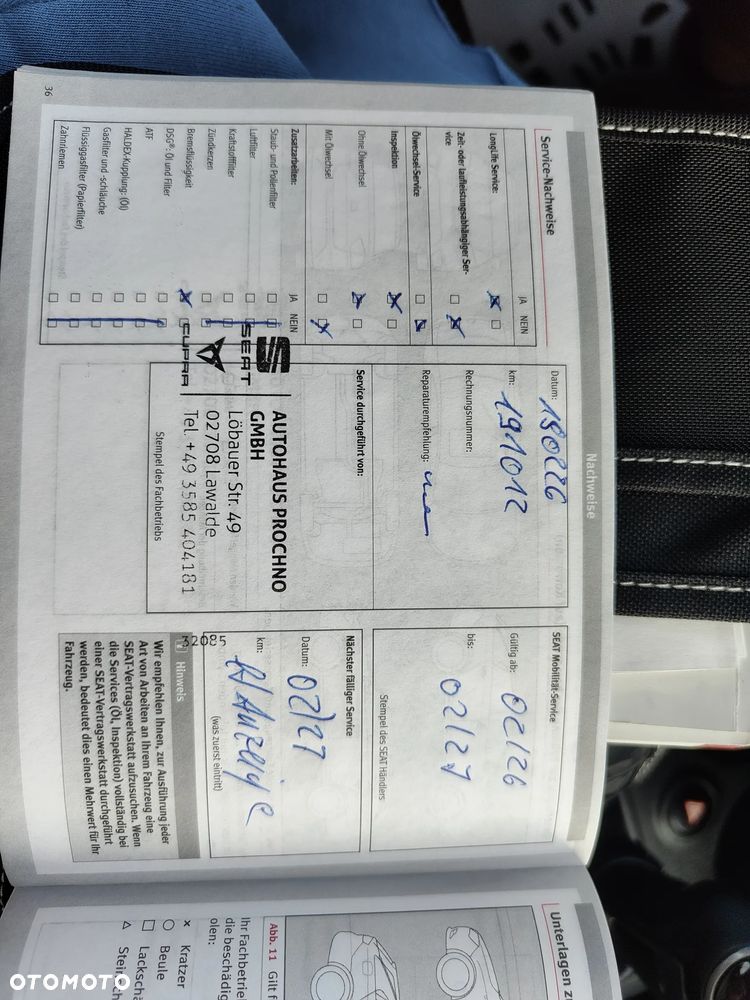 36
Nachweise
Service-Nachweise
JA NEIN
LongLife Service:
Zeit- oder laufleistungsabhängiger Ser-
vice
Ölwechsel-Service
Inspektion
Ohne Ölwechsel
Mit Ölwechsel
Zusatzarbeiten:
JA NEIN
Staub- und Pollenfilter
Luftfilter
Kraftstofffilter
Zündkerzen
Bremsflüssigkeit
DSG®: Öl und Filter
ATF
HALDEX-Kupplung: (Öl)
Gasfilter und -schläuche
Flüssiggasfilter (Papierfilter)
Zahnriemen
Datum: 180226
km: 191012
Rechnungsnummer:
Reparaturempfehlung:
Service durchgeführt von:
SEAT
CUPRA
AUTOHAUS PROCHNO
GMBH
Löbauer Str. 49
02708 Lawalde
Tel. +49 3585 404181
Stempel des Fachbetriebs
32085
SEAT Mobilität-Service
Gültig ab: 02/26
bis: 02/27
Stempel des SEAT Händlers
Nächster fälliger Service
Datum: 02/27
km:
(was zuerst eintritt)
Hinweis
Wir empfehlen Ihnen, zur Ausführung jeder
Art von Arbeiten an Ihrem Fahrzeug eine
SEAT-Vertragswerkstatt aufzusuchen. Wenn
die Services (Öl, Inspektion) vollständig bei
einer SEAT-Vertragswerkstatt durchgeführt
werden, bedeutet dies einen Mehrwert für Ihr
Fahrzeug.
Unterlagen z
Abb. 11 Gilt f
Ihr Fachbetrie
die beschädig
olen:
x Kratzer
Beule
Lackschä
Steinsch
OTOMOTO